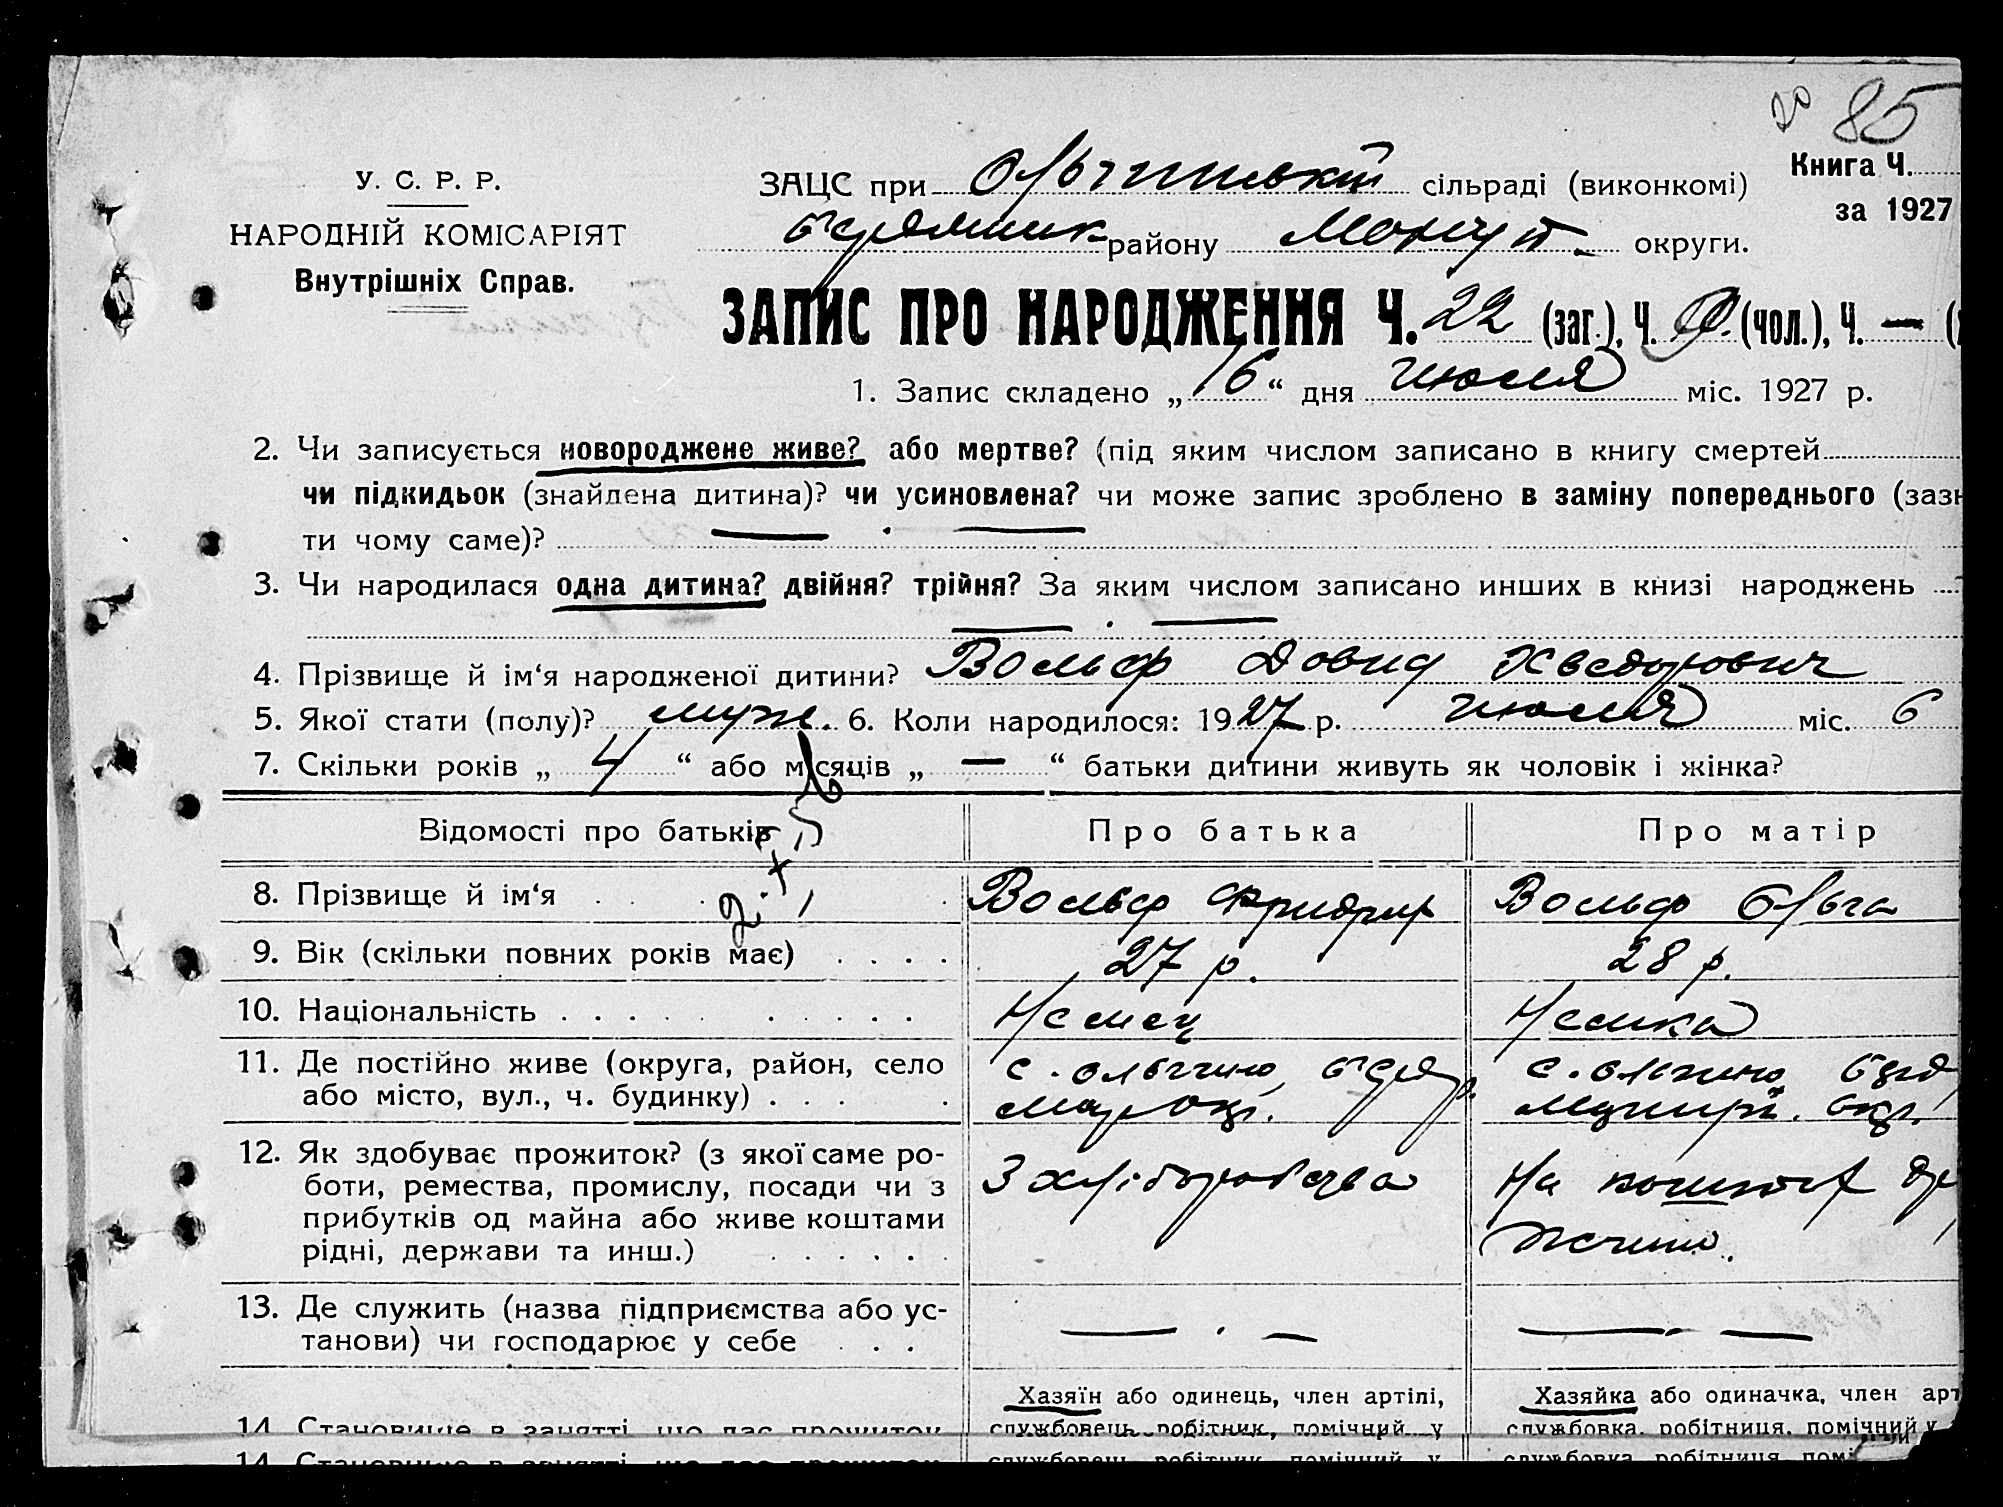 до 85
У. С. Р. Р.
НАРОДНІЙ КОМІСАРІЯТ
Внутрішніх Справ.
Книга Ч.
за 1927
ЗАЦС при сільраді (виконкомі)
району округи.
ЗАПИС ПРО НАРОДЖЕННЯ Ч. 22 (заг.), Ч. (чол.), Ч. — (
1. Запис складено „ 16 “ дня июля міс. 1927 р.
2. Чи записується новороджене живе? або мертве? (під яким числом записано в книгу смертей
чи підкидьок (знайдена дитина)? чи усиновлена? чи може запис зроблено в заміну попереднього (заз
ти чому саме)? — . —
3. Чи народилася одна дитина? двійня? трійня? За яким числом записано инших в книзі народжень
— . —
4. Прізвище й ім‘я народженої дитини? Вольф Довид Хведорович
5. Якої стати (полу)? муж. 6. Коли народилося: 1927 р. июля міс. 6
7. Скільки років „ 4 “ або місяців „ — “ батьки дитини живуть як чоловік і жінка?
Відомості про батьків
Про батька
Про матір
8. Прізвище й ім‘я . . . .
Вольф Фридрих
Вольф Ольга
9. Вік (скільки повних років має) . . . .
27 р.
28 р.
10. Національність . . . . . . . . . .
Немец
Немка
11. Де постійно живе (округа, район, село
або місто, вул., ч. будинку) . . . .
с. Ольгино
с. Ольгино
12. Як здобуває прожиток? (з якої саме ро-
боти, ремества, промислу, посади чи з
прибутків од майна або живе коштами
рідні, держави та инш.) . . . . . .
З хліборобства
На
13. Де служить (назва підприємства або ус-
танови) чи господарює у себе . . .
— . —
— . —
Хазяїн або одинець, член артілі,
службовець, робітник, помічний у
Хазяйка або одиначка, член арт
службовка, робітниця, помічний у
14. Становище в занятті, що дає прожиток
14. Становище в занятті, що дає прожиток
службовець, робітник, помічний у
службовка, робітниця, помі